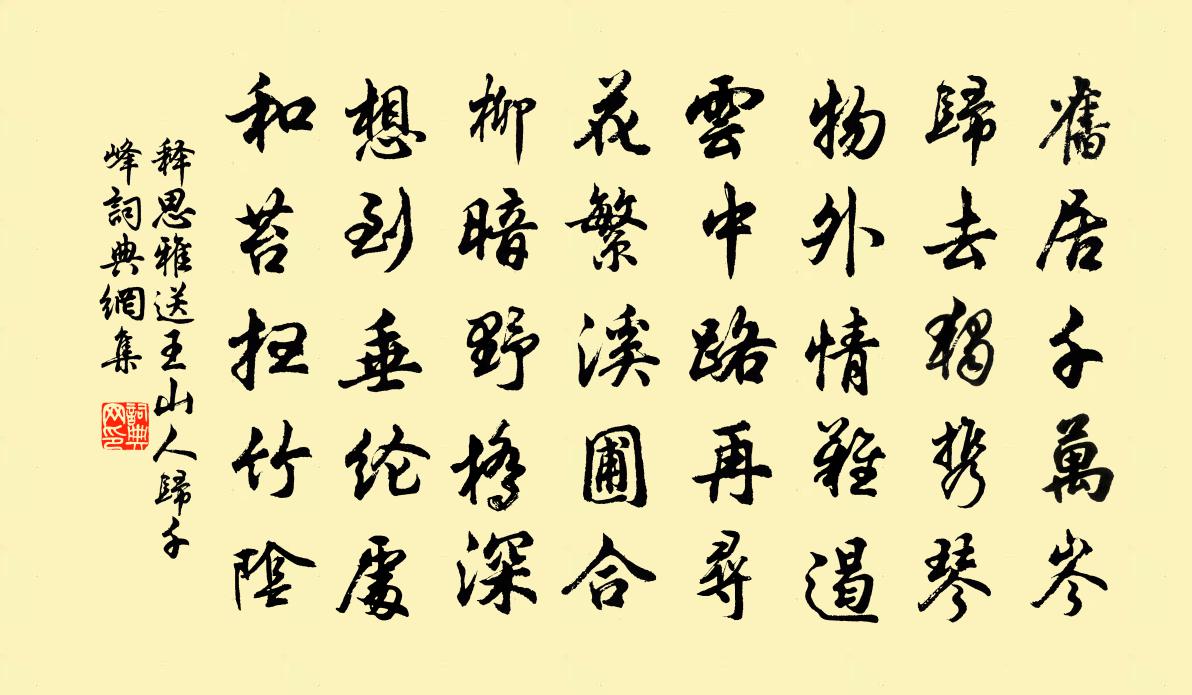 舊居千萬岑
歸去獨携琴
物外情難遏
雲中路再尋
花繁溪圃合
柳暗野橋深
想到垂纶處
和苔扫竹陰
释思雅送王山人歸千
峰詞典網集
詞典网印